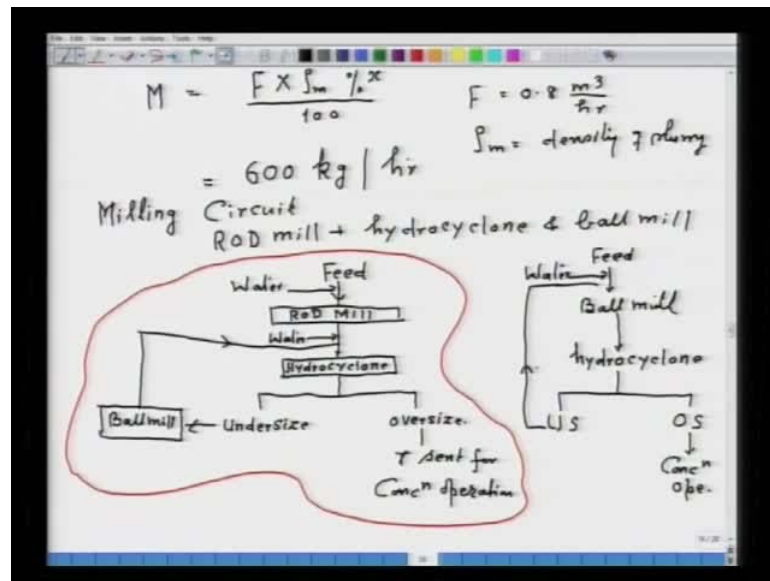 M = F × ρm % x / 100
F = 0.8 m³/hr
ρm = density of slurry
= 600 kg | hr
Milling Circuit
ROD mill + hydrocyclone & ball mill
Feed
Water
ROD MILL
Water
Hydrocyclone
Ball mill
Undersize
oversize.
sent for
Concⁿ operation
Feed
Water
Ball mill
hydrocyclone
US
OS
Concⁿ
ope.